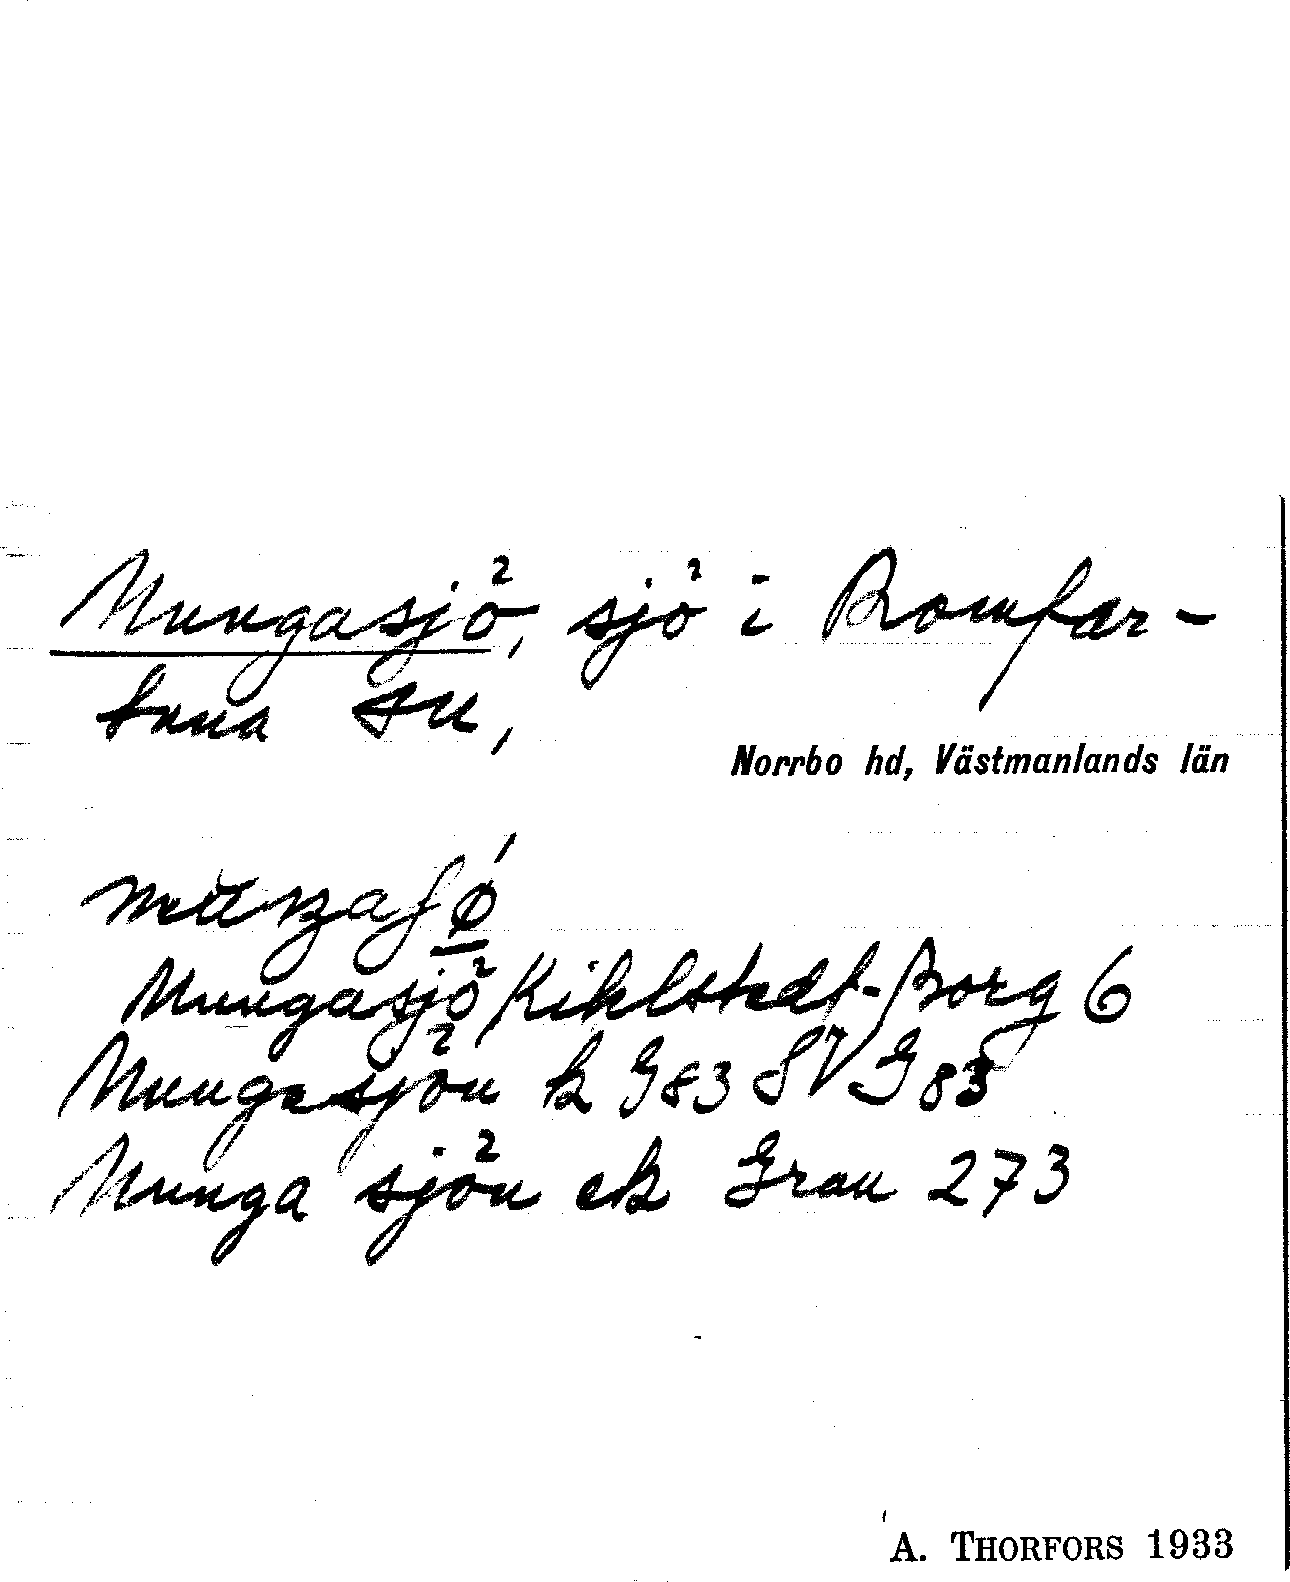 Mungasjö, sjö i Romfar-
tuna sn,
Norrbo hd, Västmanlands län
Mungasjö Kihlstedt-Borg 6
Mungasjön k G83 SV G83
Munga sjön ek Grau 273
A. THORFORS 1933